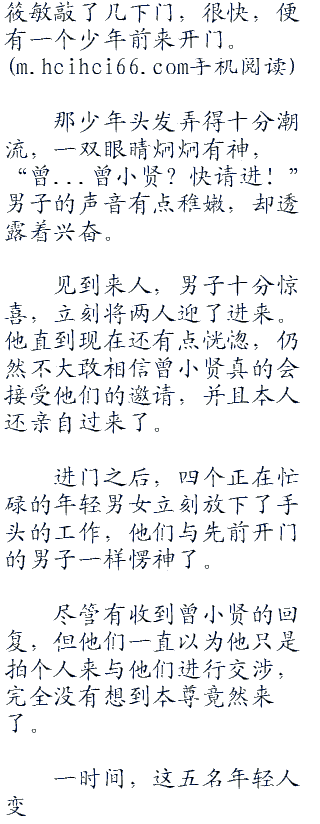 筱敏敲了几下门，很快，便
有一个少年前来开门。
(m.hcihci66.com手机阅读)
那少年头发弄得十分潮
流，一双眼睛炯炯有神，
“曾...曾小贤？快请进！”
男子的声音有点稚嫩，却透
露着兴奋。
见到来人，男子十分惊
喜，立刻将两人迎了进来。
他直到现在还有点恍惚，仍
然不大敢相信曾小贤真的会
接受他们的邀请，并且本人
还亲自过来了。
进门之后，四个正在忙
碌的年轻男女立刻放下了手
头的工作，他们与先前开门
的男子一样愣神了。
尽管有收到曾小贤的回
复，但他们一直以为他只是
拍个人来与他们进行交涉，
完全没有想到本尊竟然来
了。
一时间，这五名年轻人
变